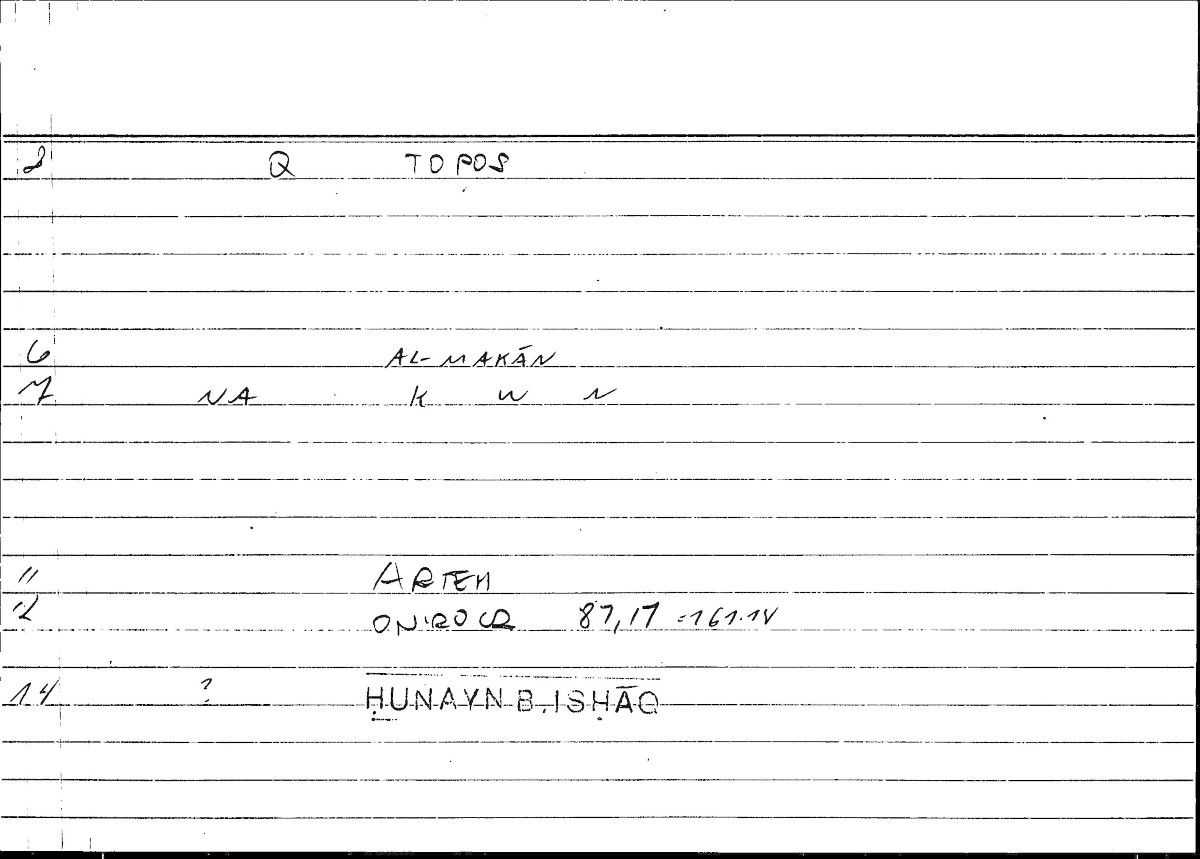 2 Q TOPOS
6 AL-MAKĀN
7 NA K W N
11 ARTEM
12 ONIROCR 87,17 =161.14
14 ? ḤUNAYN B. ISḤĀQ